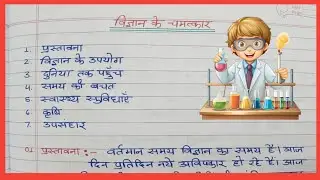 विज्ञान के चमत्कार
1. प्रस्तावना
2. विज्ञान के उपयोग
3. दुनिया तक पहुँच
4. समय की बचत
5. स्वास्थ्य सुविधाएँ
6. कृषि
7. उपसंहार
01. प्रस्तावना :- वर्तमान समय विज्ञान का समय है। आज
दिन प्रतिदिन नये आविष्कार हो रहे हैं। आज